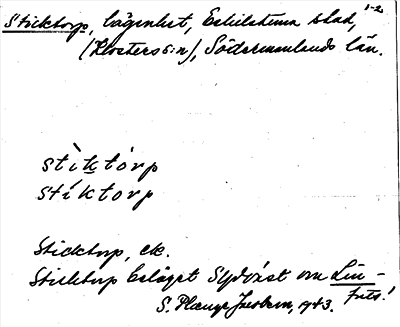 1-2
Sticktorp, lägenhet, Eskilstuna stad,
(Klosters s:n), Södermanlands län.
stìktórp
stíktorp
Sticktorp, ek.
Sticktorp beläget Sydväst om Lin-
S. Jacobson, 1943.